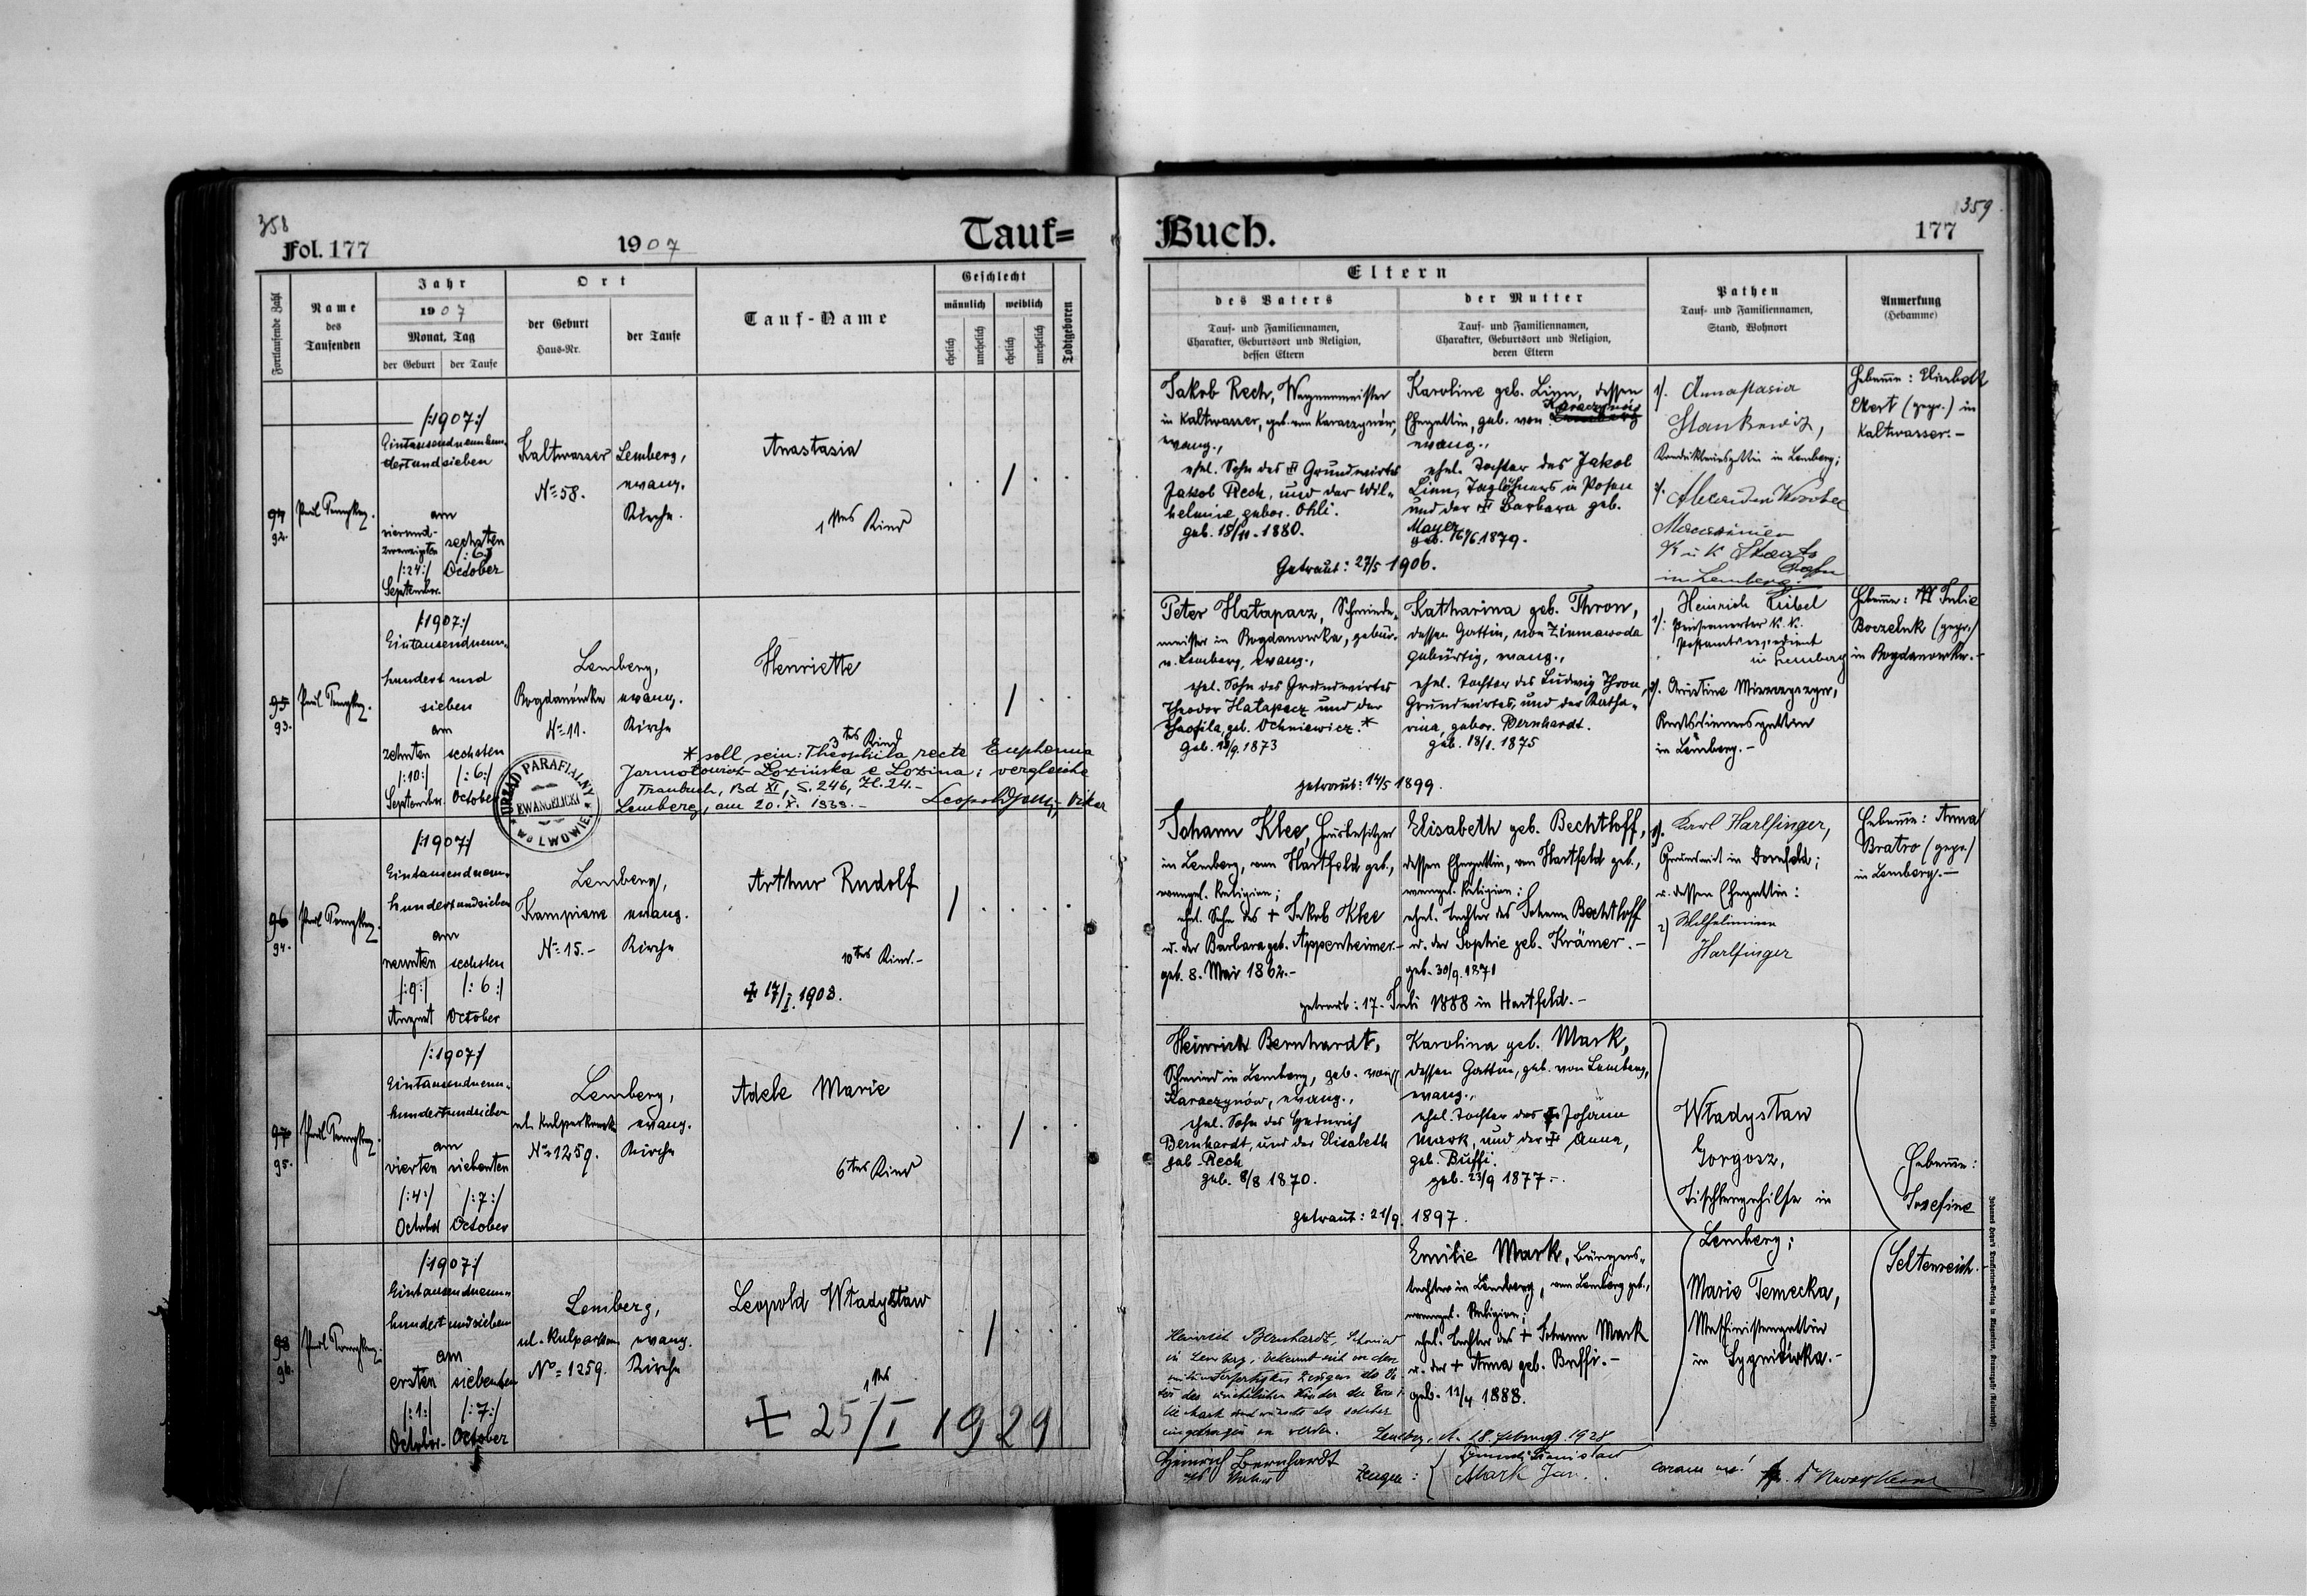 358
Fol. 177
1907
Tauf=
Fortlaufende Zahl
Name
des
Taufenden
Jahr
1907
Monat, Tag
der Geburt
der Taufe
Ort
der Geburt
Haus-Nr.
der Taufe
Tauf-Name
Geschlecht
männlich
weiblich
ehelich
unehelich
ehelich
unehelich
Todtgeboren
94
92.
/:1907:/
Eintausendneunhun-
dertundsieben
am
vierund-
zwanzigsten
/:24:/
September
sechsten
/:6:/
October
Kaltwasser
No 58.
Lemberg,
evang.
Kirche.
Anastasia
1tes Kind
95
93.
/:1907:/
Eintausendneun-
hundert und
sieben
am
zehnten
/:10:/
September
sechsten
/:6:/
October
Lemberg,
Bogdanówka
No 11.
evang.
Kirche
Henriette
3tes Kind
* soll sein: Theophila recte Euphemia
Jarmolowicz-Łozińska e Lozina; vergleiche
Traubuch, Bd XI, S. 246, Zl. 24.-
Lemberg, am 20. X. 1938.-
Vikar
URZĄD PARAFIALNY
EWANGELICKI
WE LWOWIE
96
94.
/:1907:/
Eintausendneun-
hundertundsieben
am
neunten
/:9:/
August
sechsten
/:6:/
October
Lemberg,
No 15.-
evang.
Kirche
Arthur Rudolf
10tes Kind.-
+ 17/I. 1908.
97
95.
/:1907:/
Eintausendneun-
hundertundsieben
am
vierten
/:4:/
October
siebenten
/:7:/
October
Lemberg,
ul. Kulparkowska
No 1259.
evang.
Kirche
Adele Marie
6tes Kind
98
96.
/:1907:/
Eintausendneun-
hundertundsieben
am
ersten
/:1:/
October
siebenten
/:7:/
October
Lemberg,
No 1259.
evang.
Kirche
Leopold Władysław
1tes
+ 25/I 1929
Buch.
359
177
Eltern
des Vaters
Tauf- und Familiennamen,
Charakter, Geburtsort und Religion,
dessen Eltern
der Mutter
Tauf- und Familiennamen,
Charakter, Geburtsort und Religion,
deren Eltern
Pathen
Tauf- und Familiennamen,
Stand, Wohnort
Anmerkung
(Hebamme)
Jakob Rech, Wagenmeister
in Kaltwasser, geb. von Karaczynów,
evang.,
ehel. Sohn des + Grundwirtes
Jakob Rech, und der Wil-
helmine, gebor. Ohli.
geb. 18/11. 1880.
Karoline geb. Linn, dessen
Ehegattin, geb. von Karaczynów
evang.,
ehel. Tochter des Jakob
Linn, Taglöhners in Posen
und der + Barbara geb.
Mayer
geb. 16/6. 1879.
Getraut: 27/5 1906.
1/. Annastasia
Stankewitz,
in Lemberg;
2/.
K u K Staats
in Lemberg.
Hebamme:
Ekert (gepr.) in
Kaltwasser.-
Peter Hatapacz, Schmiede-
meister in Bogdanowka, gebür.
v. Lemberg, evang.,
ehel. Sohn des Grundwirtes
Theodor Hatapacz und der
Theofila, geb. Ochniewicz.*
Katharina geb. Thron,
dessen Gattin, von Zimnawoda
gebürtig, evang.,
ehel. Tochter des Ludwig Thron,
Grundwirtes, und der Katha-
rina, gebor. Bernhardt.
geb. 18/1. 1875
getraut: 14/5 1899.
1/. Heinrich
Pensionierter K. K.
in Lemberg
2/. Christine
in Lemberg.-
Hebamme: Julie
Boczeluk (gepr.)
in Bogdanowka.-
Johann Klee, Hausbesitzer
in Lemberg, von Hartfeld geb.,
evangel. Religion;
ehel. Sohn des + Jakob Klee
u. der Barbara geb. Appenheimer.-
geb. 8. Mai 1862.-
Elisabeth geb. Bechtloff,
dessen Ehegattin, von Hartfeld geb.,
evangel. Religion;
ehel. Tochter des Johann Bechtloff
u. der Sophie geb. Krämer.-
geb. 30/9. 1871
getraut: 17. Juli 1888 in Hartfeld.-
1/. Karl Harlfinger,
Grundwirt in Dornfeld;
u. dessen Ehegattin:
2/ Wilhelmine
Harlfinger
Hebamme: Anna
Bratro (gepr.)
in Lemberg.-
Heinrich Bernhardt,
Schmied in Lemberg, geb. von
Karaczynów, evang.,
ehel. Sohn des Heinrich
Bernhardt, und der Elisabeth
geb. Rech
geb. 8/8 1870.
Karolina geb. Mark,
dessen Gattin, geb. von Lemberg,
evang.,
ehel. Tochter des + Johann
Mark, und der + Anna,
geb. Buffi.
geb. 23/9 1877.-
getraut: 21/9. 1897.
Władysław
Gorgosz,
Tischlergehilfe in
Lemberg;
Marie Temecka,
Maschinistensgattin
in Sygniówka.-
Hebamme:
Josefine
Seltenreich.-
Emilie Mark, Bürgers-
tochter in Lemberg, von Lemberg geb.,
evangel. Religion;
ehel. Tochter des + Johann Mark
u. der + Anna geb. Buffi.-
geb. 12/4 1888.
Heinrich Bernhardt, Schmied
in Lemberg, bekennt sich vor den
mitunterfertigten Zeugen als Va-
ter des unehelichen Kindes der Emi-
lie Mark und wünscht als solcher
eingetragen zu werden. Lemberg, d. 18. Februar 1928
Heinrich Bernhardt
als Vater
Zeugen:
Mark Jan.
coram me!